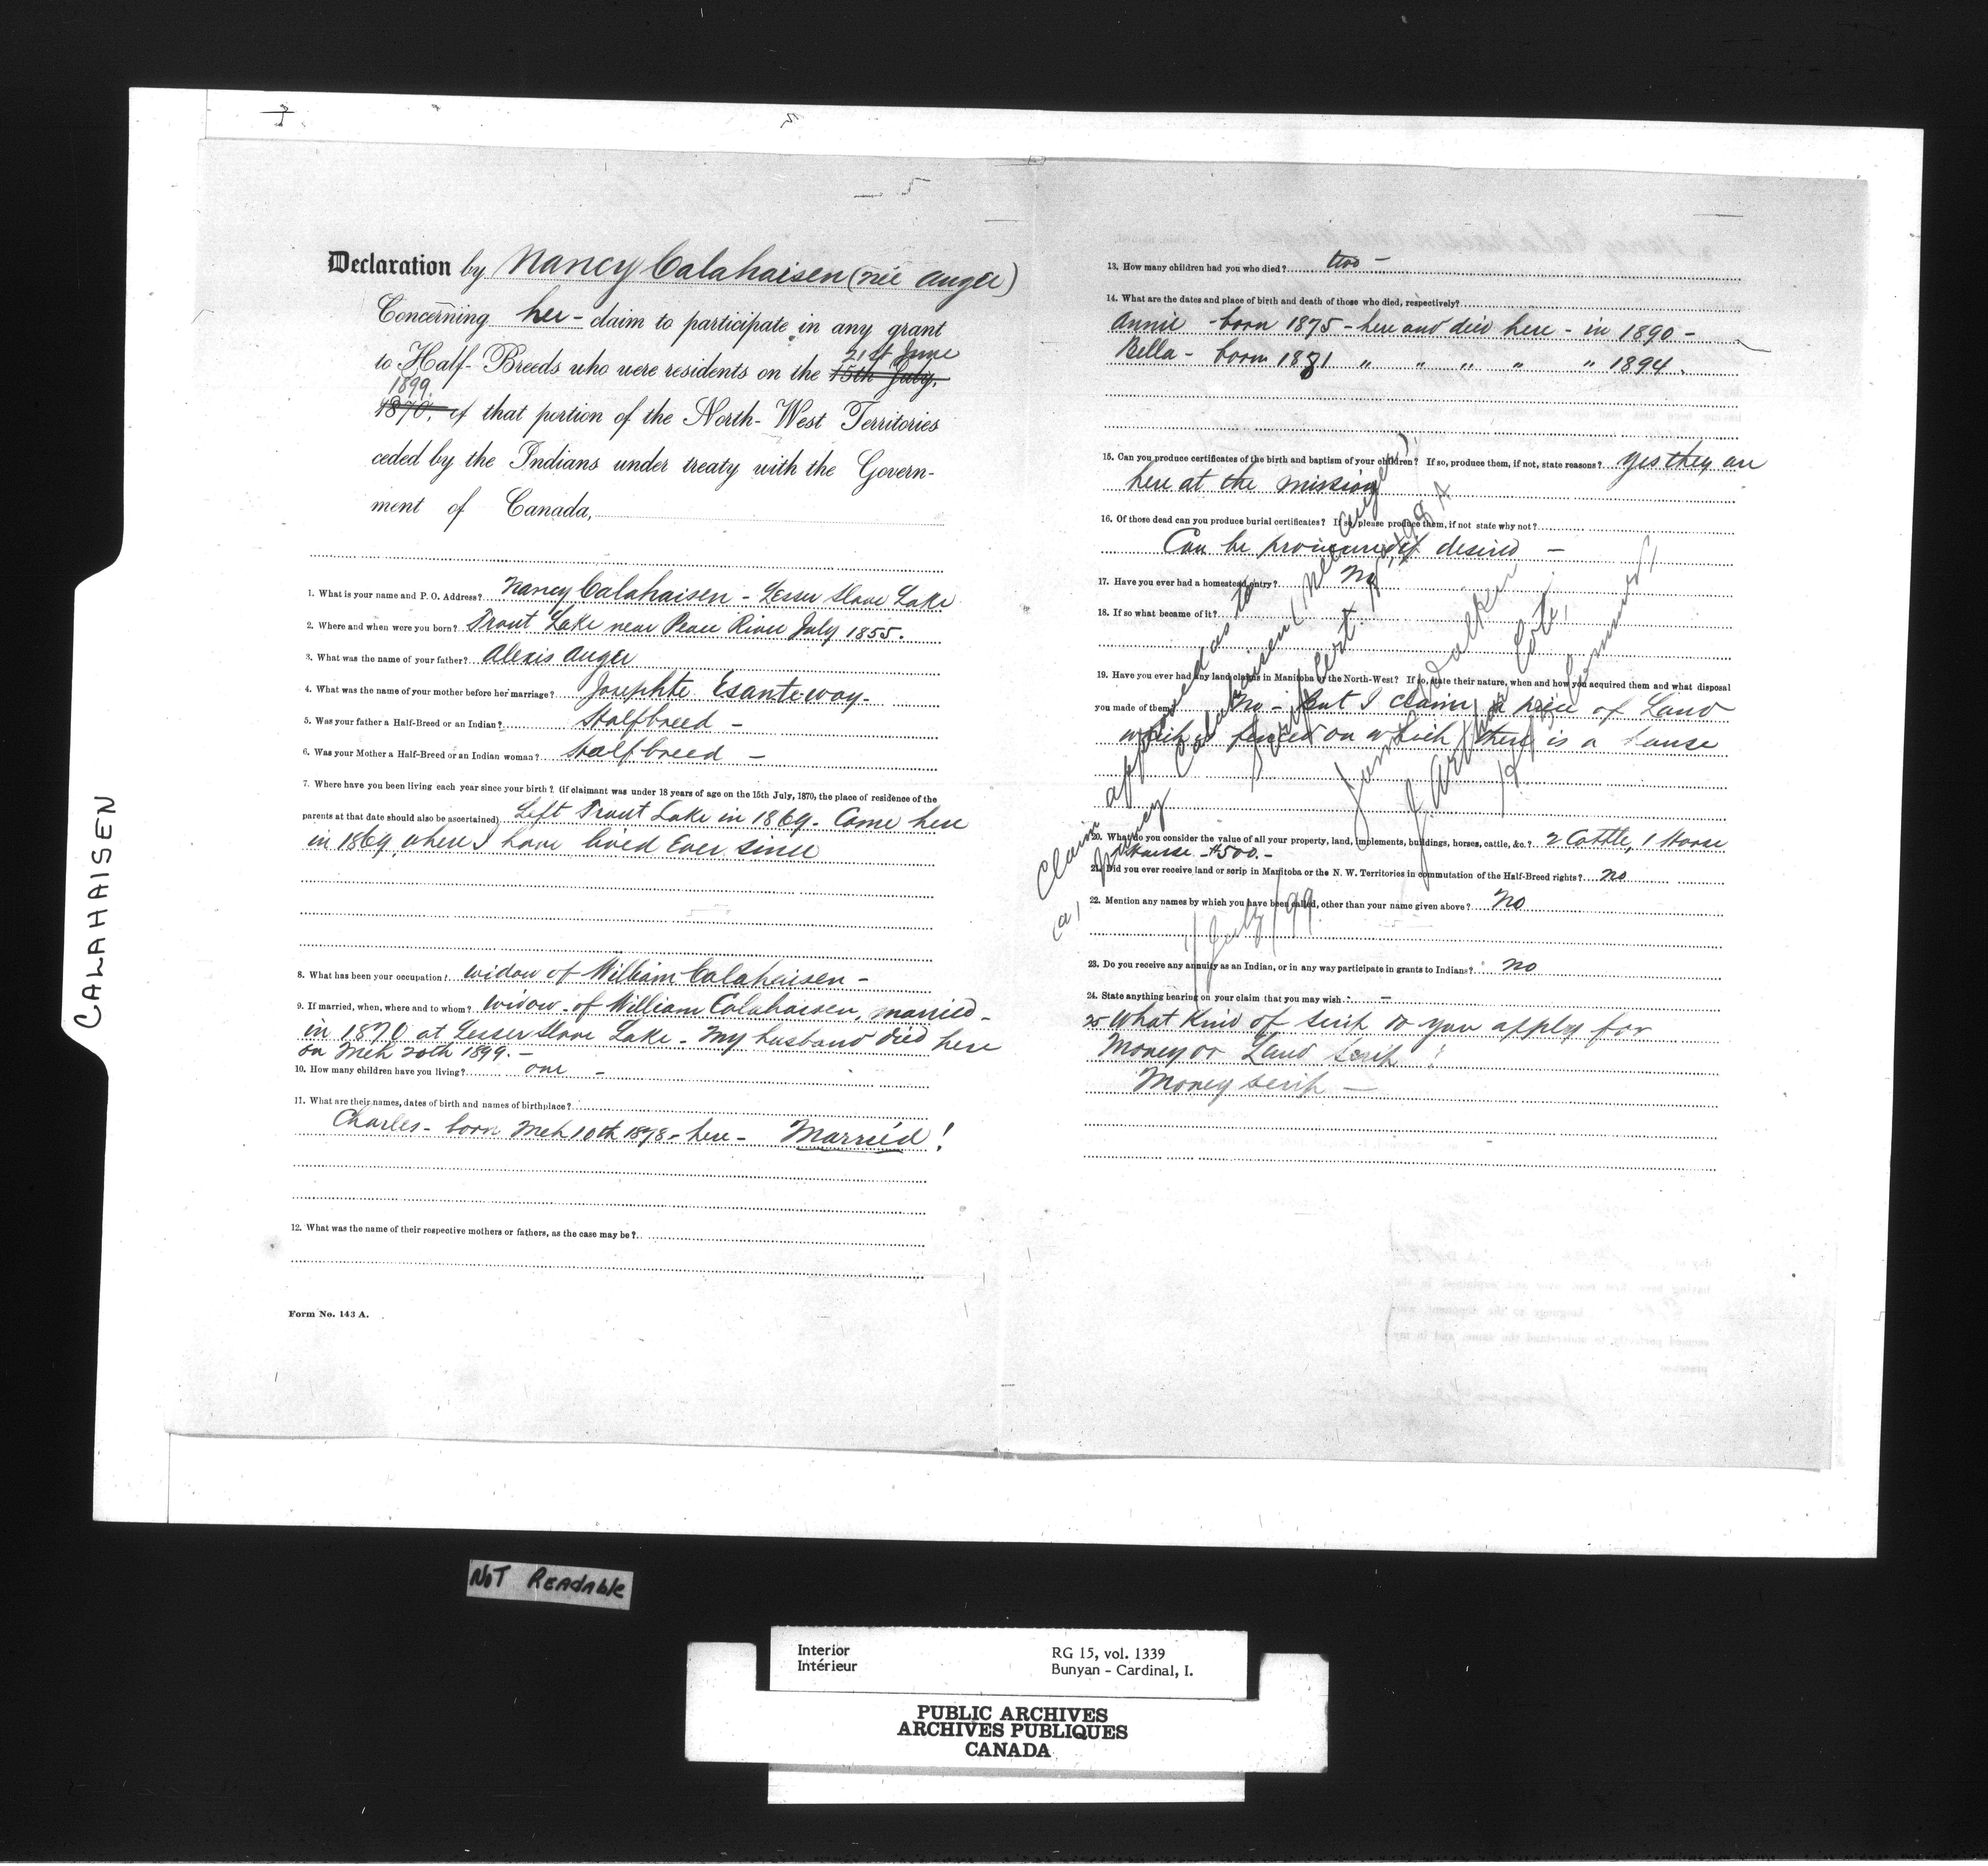 CALAHAISEN
Declaration by Nancy Calahaisen (née Auger)
Concerning her - claim to participate in any grant
21st June
to Half-Breeds who were residents on the 15th July,
1899
1870, of that portion of the North-West Territories
ceded by the Indians under treaty with the Govern-
ment of Canada,
1. What is your name and P. O. Address? Nancy Calahaisen - Lesser Slave Lake
2. Where and when were you born? Trout Lake near Peace River July 1855.
3. What was the name of your father? Alexis Auger
4. What was the name of your mother before her marriage? Josephte Esante-way-
5. Was your father a Half-Breed or an Indian? Halfbreed -
6. Was your Mother a Half-Breed or an Indian woman? Halfbreed -
7. Where have you been living each year since your birth? (if claimant was under 18 years of age on the 15th July, 1870, the place of residence of the
parents at that date should also be ascertained) Left Trout Lake in 1869. Came here
in 1869 where I have lived ever since
8. What has been your occupation? widow of William Calahaisen -
9. If married, when, where and to whom? widow of William Calahaisen, married -
in 1870 at Lesser Slave Lake - My husband died here
on Mch 20th 1899. -
10. How many children have you living? one -
11. What are their names, dates of birth and names of birthplace?
Charles - born Mch 10th 1878 - here - Married !
12. What was the name of their respective mothers or fathers, as the case may be?
Form No. 143 A.
13. How many children had you who died? two -
14. What are the dates and place of birth and death of those who died, respectively?
Annie - born 1875 - here and died here - in 1890 -
Bella - born 1881 " " " " " 1894.
15. Can you produce certificates of the birth and baptism of your children? If so, produce them, if not, state reasons? yes they are
here at the mission
16. Of those dead can you produce burial certificates? If so, please produce them, if not state why not?
Can be procured if desired -
17. Have you ever had a homestead entry? No
18. If so what became of it?
19. Have you ever had any land claims in Manitoba or the North-West? If so, state their nature, when and how you acquired them and what disposal
you made of them? No - But I claim a piece of Land
which is fenced on which there is a house
20. What do you consider the value of all your property, land, implements, buildings, horses, cattle, &c.? 2 Cattle, 1 Horse
House - $500. -
21. Did you ever receive land or scrip in Manitoba or the N. W. Territories in commutation of the Half-Breed rights? No
22. Mention any names by which you have been called, other than your name given above? No
23. Do you receive any annuity as an Indian, or in any way participate in grants to Indians? no
24. State anything bearing on your claim that you may wish. -
25 What kind of scrip do you apply for
Money or Land scrip ?
Money scrip -
Claim approved as to
Nancy Calahaisen (née Auger)
Scrip Cert.
James Walker
J. Arthur Coté,
July /99
NOT READABLE
Interior
Intérieur
RG 15, vol. 1339
Bunyan - Cardinal, I.
PUBLIC ARCHIVES
ARCHIVES PUBLIQUES
CANADA